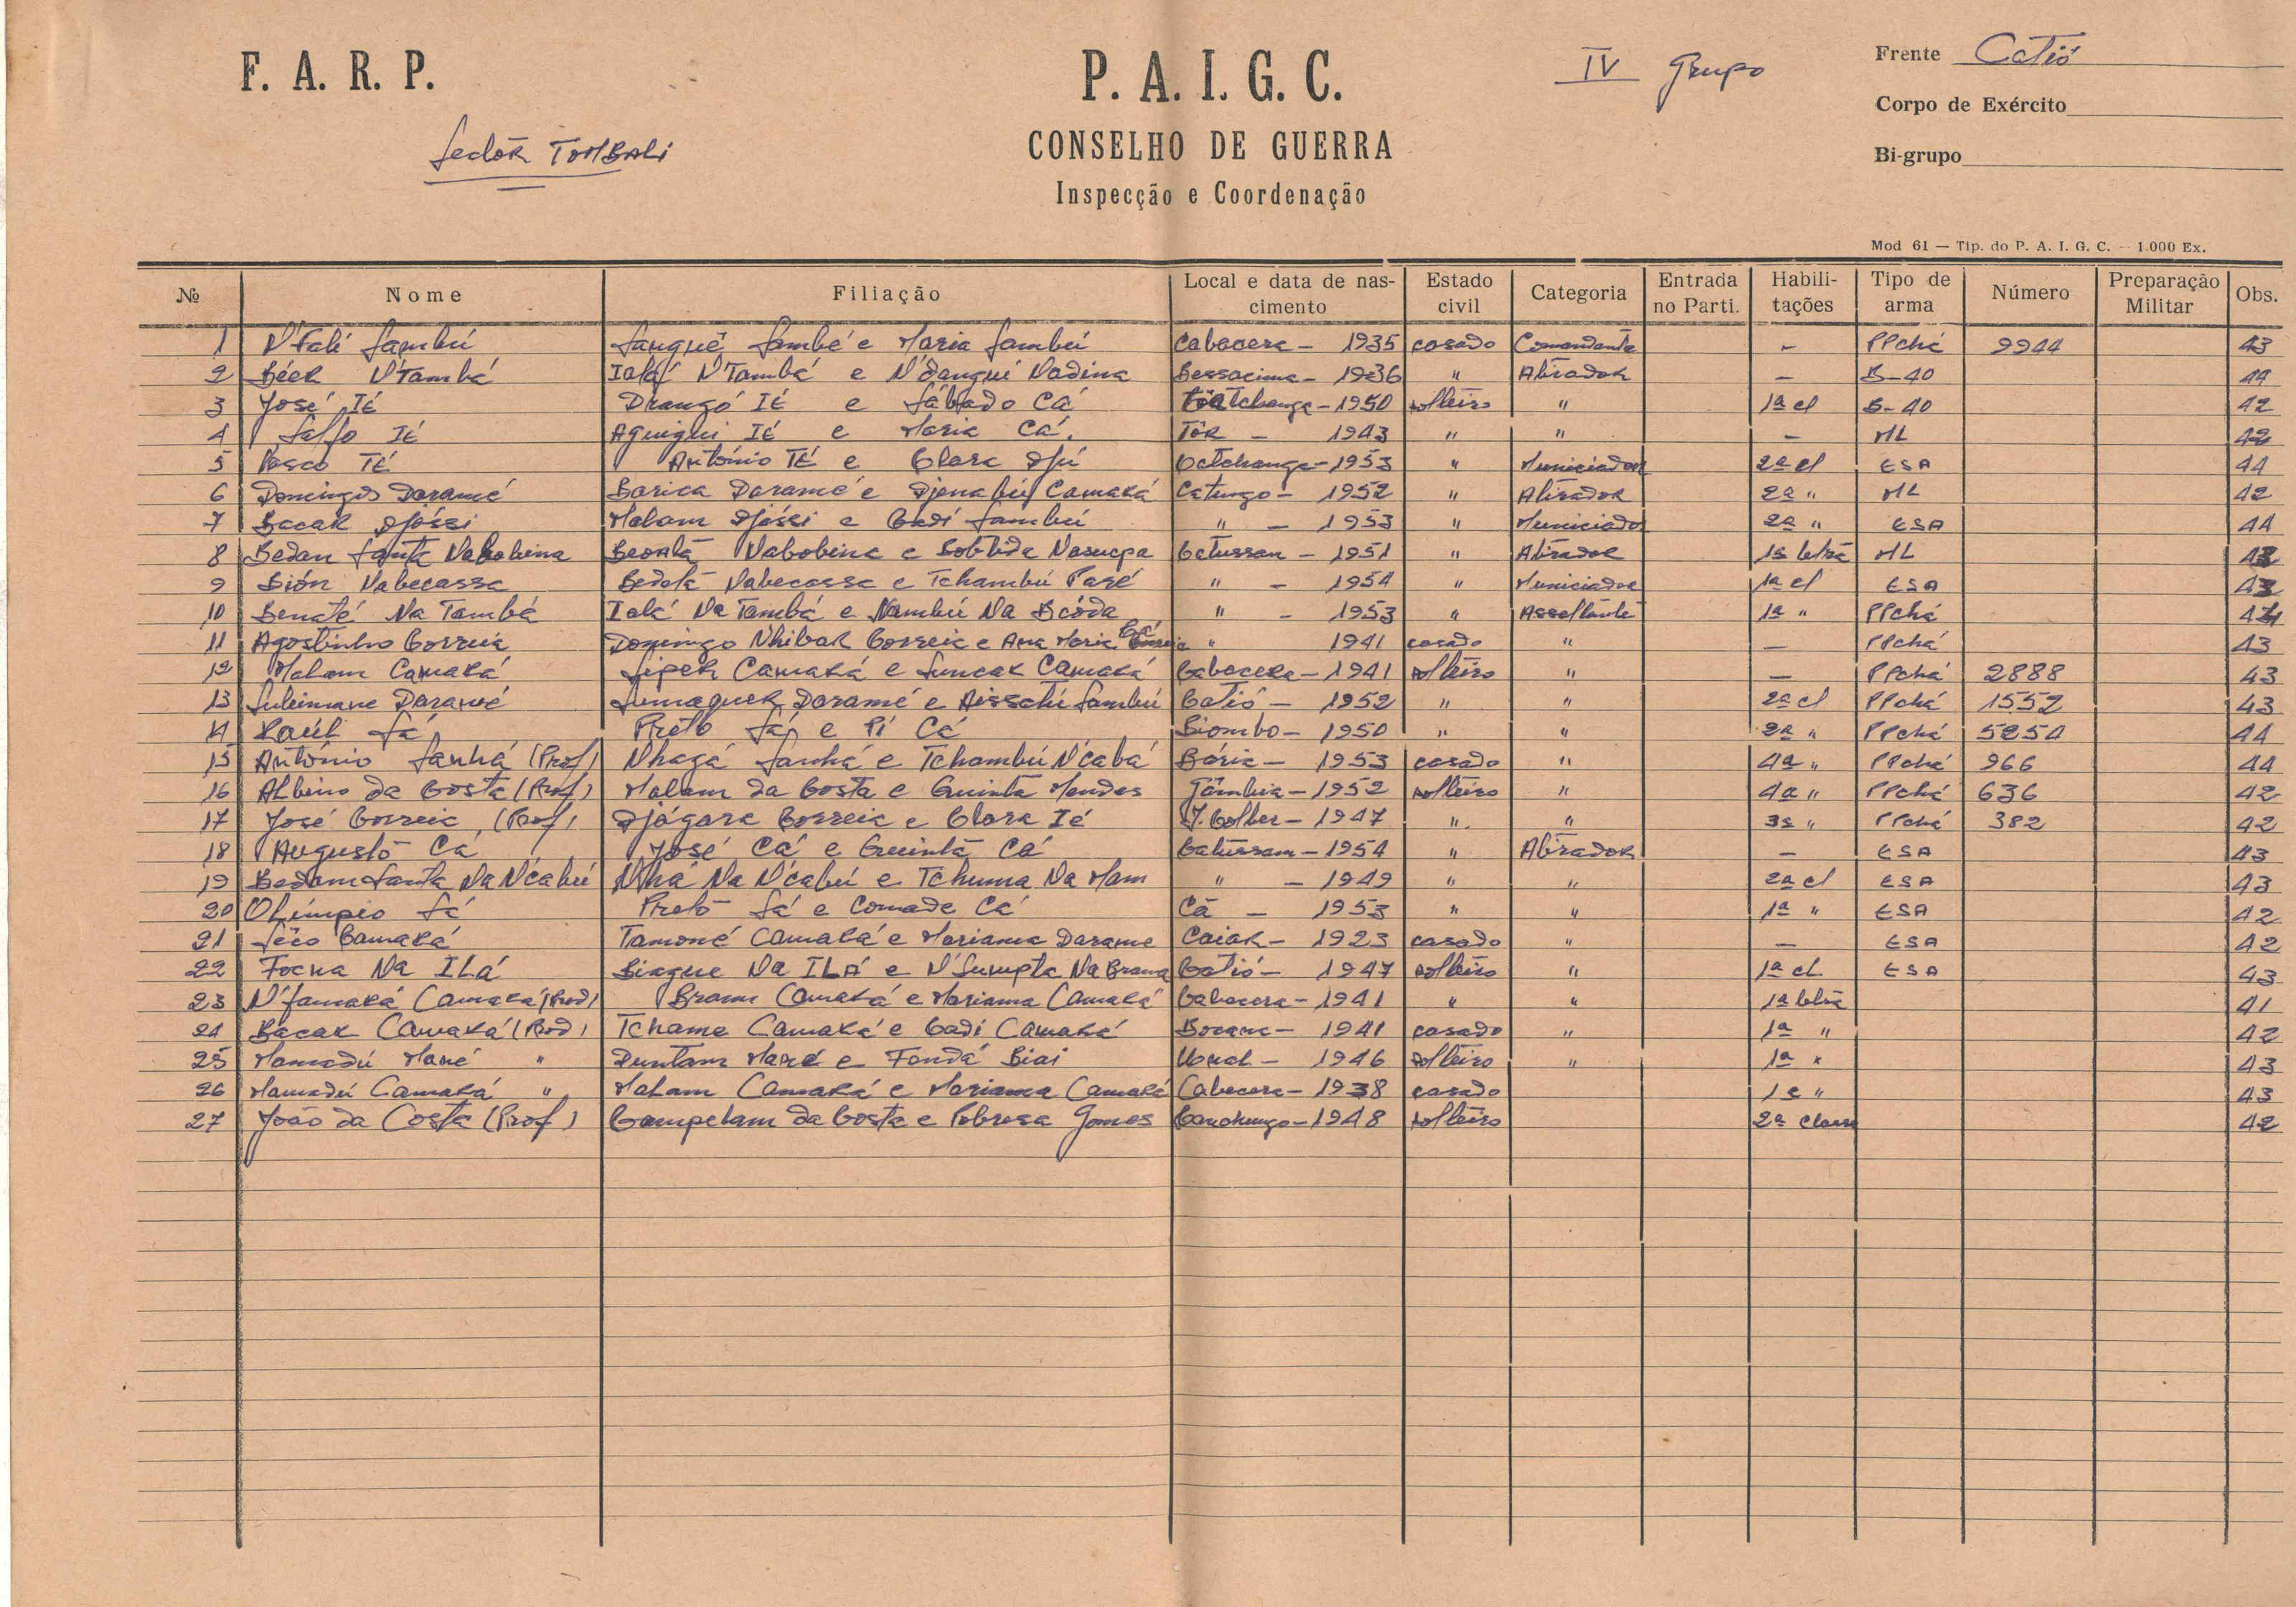 F. A. R. P.
P. A. I. G. C.
IV Grupo
Frente Catió
Corpo de Exército
Sector TOMBALi
CONSELHO DE GUERRA
Bi-grupo
Inspecção e Coordenação
Mod 61 — Tip. do P. A. I. G. C. — 1.000 Ex.
№ Nome Filiação Local e data de nascimento Estado civil Categoria Entrada no Parti. Habilitações Tipo de arma Número Preparação Militar Obs.
1 N'Fali Sambú Sambé e Maria Sambú Cabacera - 1935 casado Comandante - PPchá 9944 43
2 N'Tambá Ialá N'Tambá e N'dangui Nadina - 1936 " Atirador - B-40 44
3 José Ié Ié e Sábado Cá - 1950 solteiro " 1ª cl B-40 42
4 Ié Ié e Maria Cá. Tôr - 1943 " " - ML 42
5 Té António Té e Clara Djú Catchanga - 1953 " Municiador 2ª cl ESA 44
6 Domingos Daramé Daramé e Djenabú Camará Catungo - 1952 " Atirador 2ª " ML 42
7 Bacar Djássi Malam Djássi e Cadi Sambú " - 1953 " Municiador 2ª " ESA 44
8 Bedan Santa Nabobina Nabobina e Catussan - 1951 " Atirador 1ª letra ML
9 Bión Nabecassa Nabecassa e Tchambú " - 1954 " Municiador 1ª cl ESA 43
10 Benaté Na Tambá Ialá Na Tambá e Nambú Na Bcóda " - 1953 " Assaltante 1ª " PPchá
11 Agostinho Correia Domingo Correia e Ana Maria Cá " 1941 casado " - PPchá 43
12 Malam Camará Camará e Camará Cabacera - 1941 solteiro " - PPchá 2888 43
13 Suleimane Daramé Daramé e Sambú Catió - 1952 " " 2ª cl PPchá 1552 43
14 Raúl Sá Preto Sá e Pi Cá Biombo - 1950 " " 2ª " PPchá 5254 44
15 António Sanhá (Prof) Nhagá Sanhá e Tchambú N'cabá Bária - 1953 casado " 4ª " PPchá 966 44
16 Albino da Costa (Prof) Malam da Costa e Quinta Mendes Gâmbia - 1952 solteiro " 4ª " PPchá 636 42
17 José Correia (Prof) Djágara Correia e Clara Ié - 1947 " " 3ª " PPchá 382 42
18 Augusto Cá José Cá e Quintá Cá Catussam - 1954 " Atirador - ESA 43
19 Bedam Santa Na N'cabú Nhá Na N'cabú e Tchuma Na Mam " - 1949 " " 2ª cl ESA 43
20 Olímpio Sá Preto Sá e Comade Cá Cã - 1953 " " 1ª " ESA 42
21 Séco Camará Tamoné Camará e Mariama Darame Caiar - 1923 casado " - ESA 42
22 Focna Na ILá Biague Na ILá e Catió - 1947 solteiro " 1ª cl ESA 43
23 N'famará Camará (Prod) Camará e Mariama Camará Cabacera - 1941 " " 1ª letra 41
24 Bácar Camará (Prod) Tchame Camará e Cadi Camará - 1941 casado " 1ª " 42
25 Mamadú Mané " Duntam Mané e Fondá Biai - 1946 solteiro " 1ª " 43
26 Mamadú Camará " Malam Camará e Mariama Camará Cabecera - 1938 casado 1ª " 43
27 João da Costa (Prof) da Costa e Gomes Canchungo - 1948 solteiro 2ª classe 42